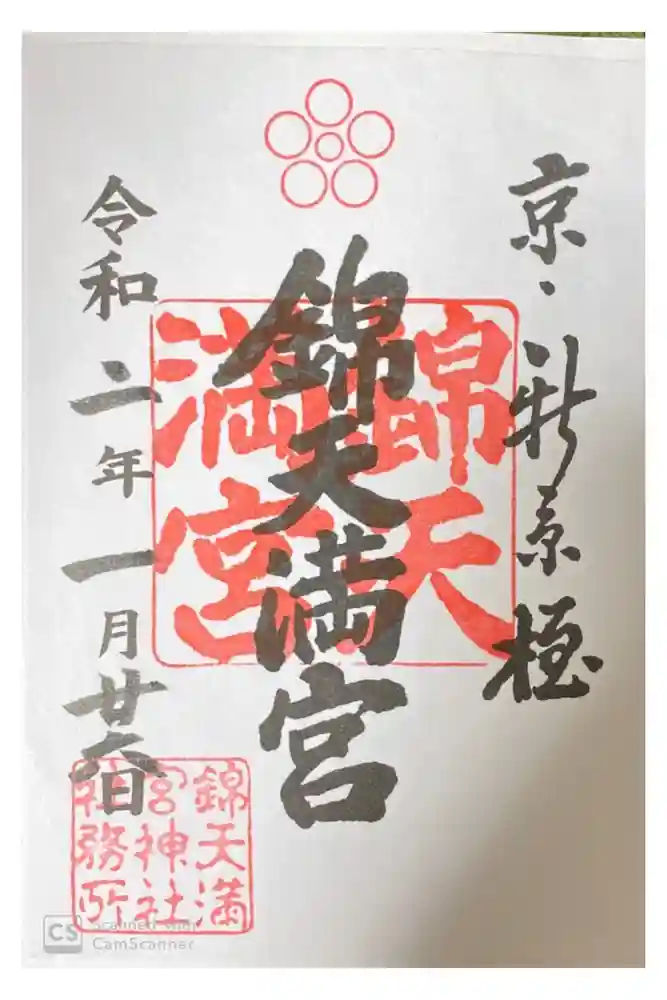 京・新京極
錦天満宮
錦天
満宮
令和二年一月廿六日
錦天満
宮神社
社務所
CS Scanned with
CamScanner